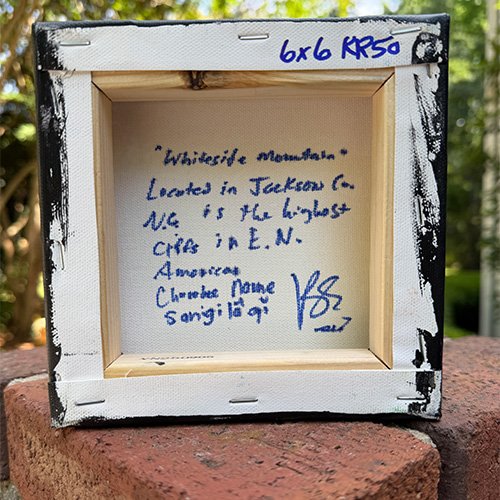 6x6 KR50
"Whiteside Mountain"
Located in Jackson Co.
N.C. is the highest
Cliffs in E. N.
American
Cherokee Name